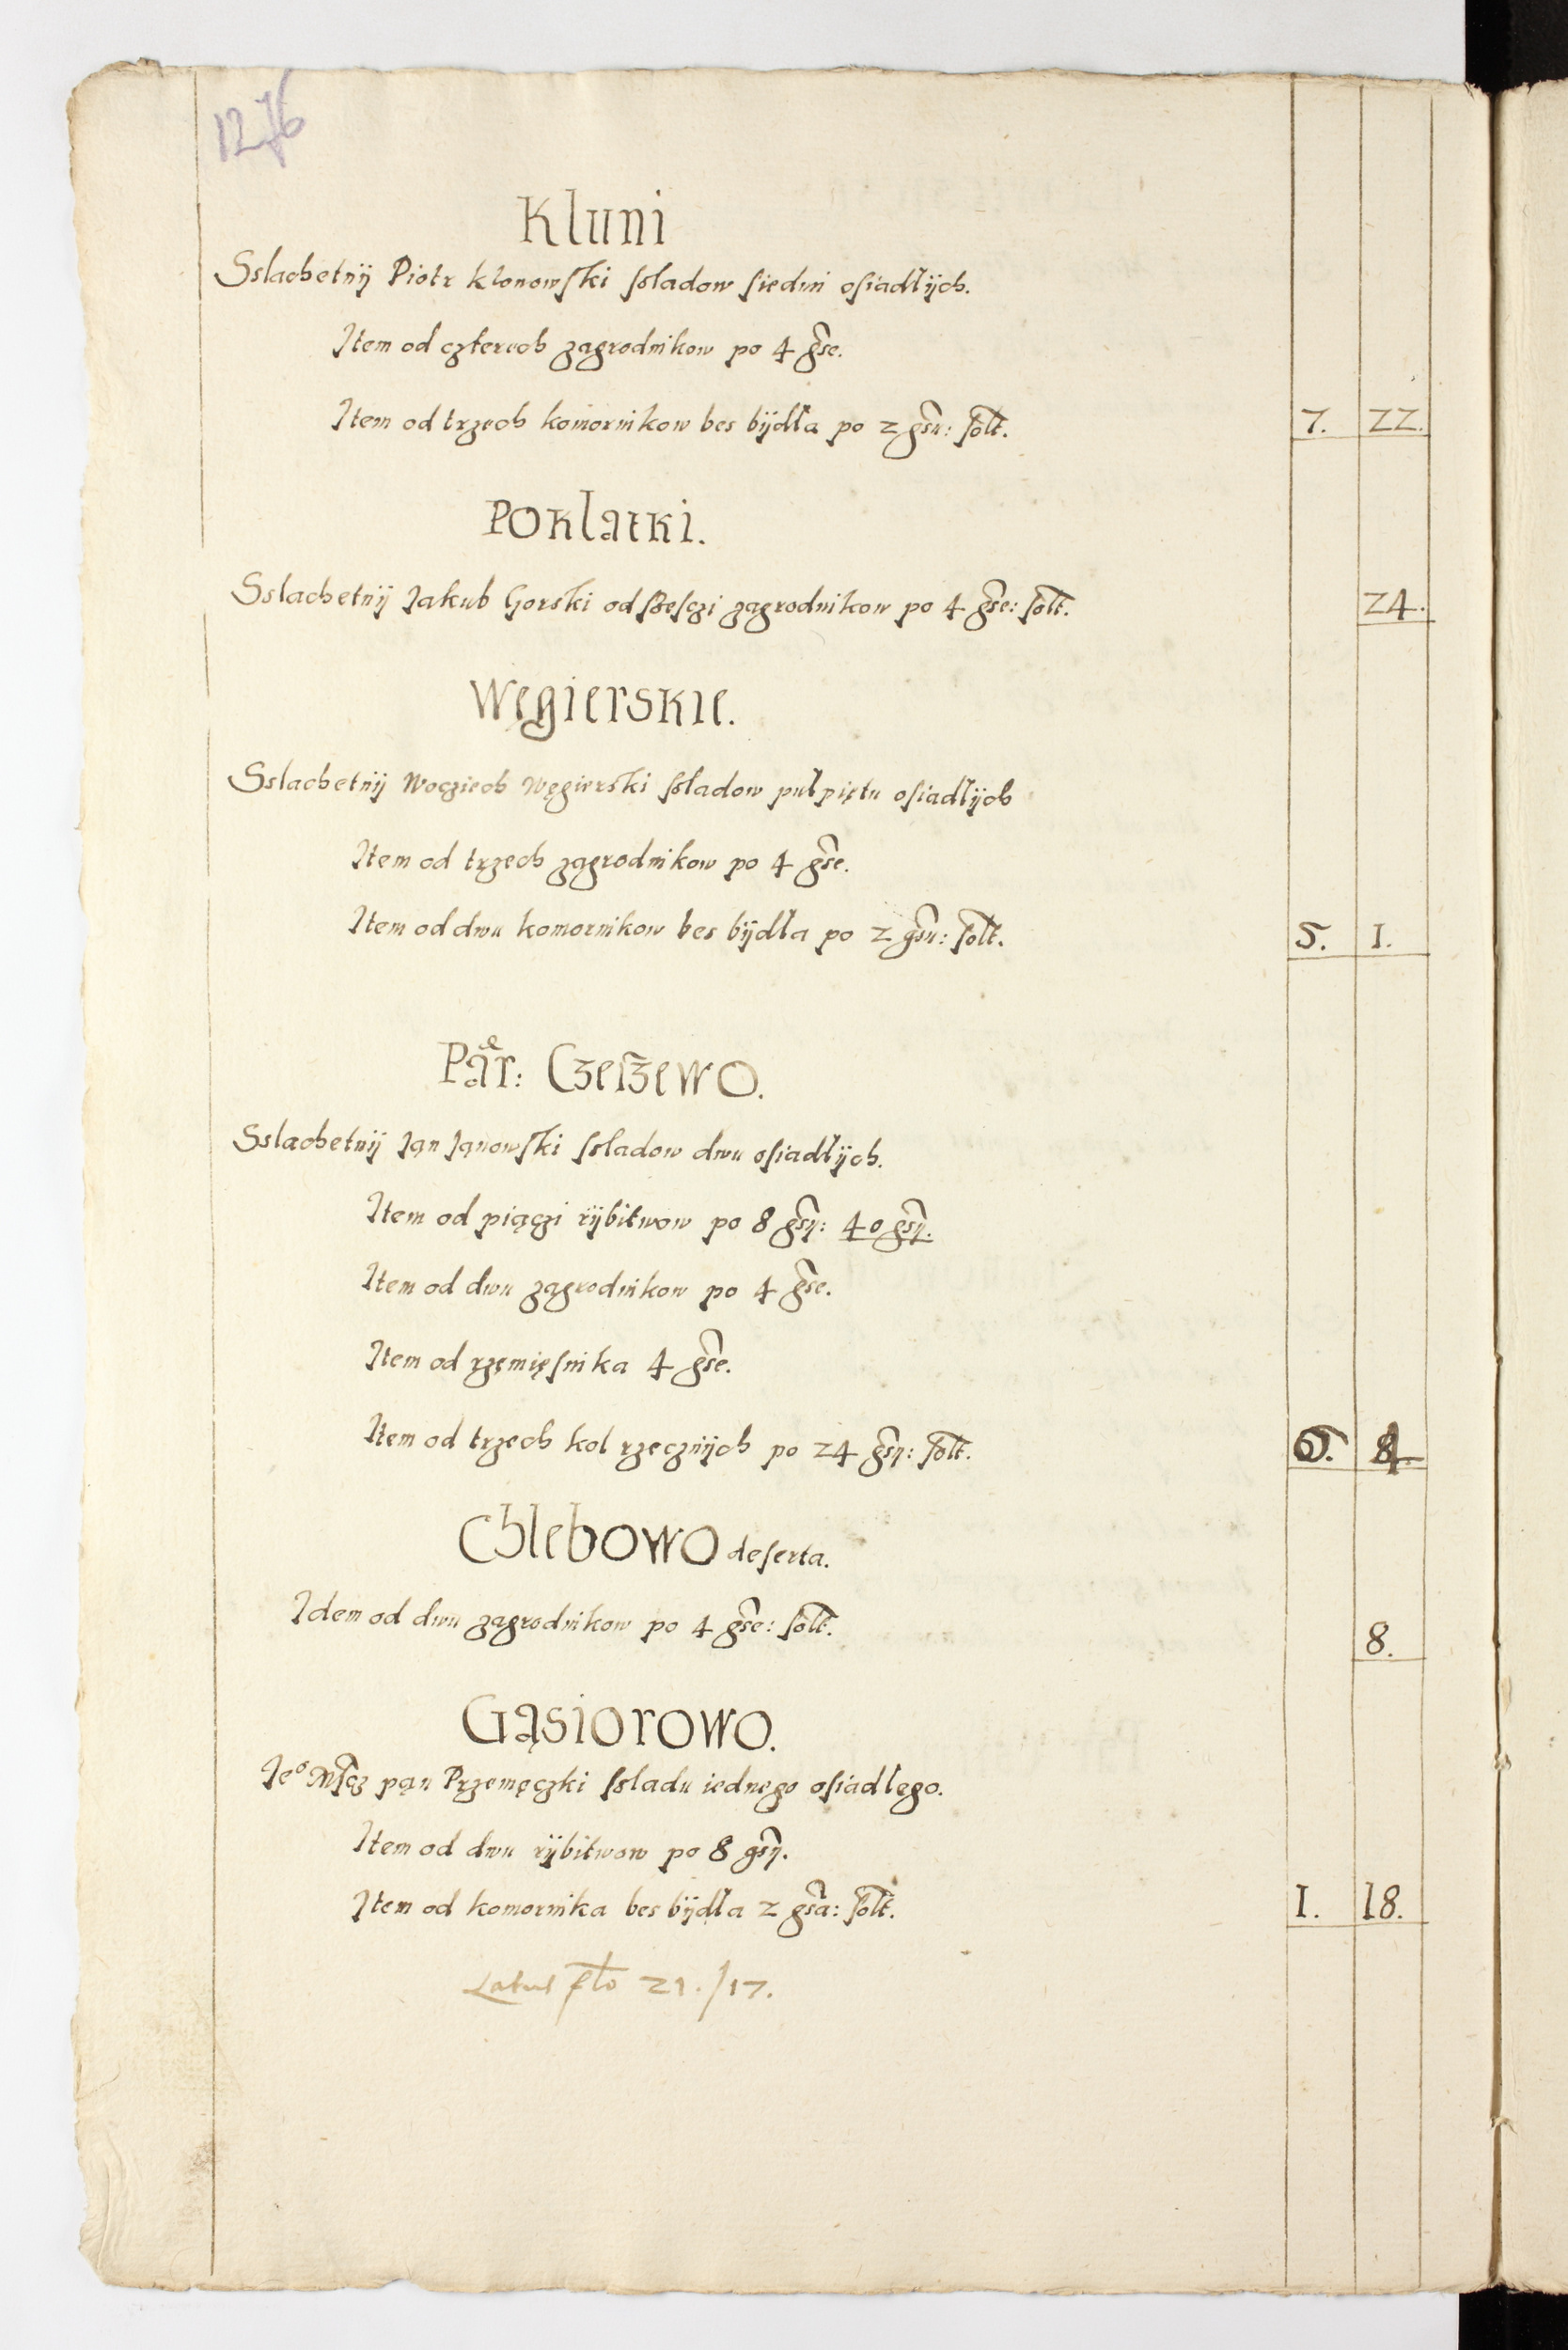 1276
Kluni
Sslachetnÿ Piotr klonowski ssladow siedmi osiadłÿch.
Item od czterech zagrodnikow po 4 gse.
Item od trzech komornikow bes bÿdła po 2 gsu: solt. 7. 22.
Poklatki.
Sslachetnÿ Jakub Gorski od szesczi zagrodnikow po 4 gse: solt. 24.
Węgierskie.
Sslachetnÿ Wocziech Węgierski ssladow pułpiętu osiadłÿch
Item od trzech zagrodnikow po 4 gse.
Item od dwu komornikow bes bÿdła po 2 gsu: solt. 5. 1.
Par: Czeszewo.
Sslachetnÿ Jan Janowski ssladow dwu osiadłÿch.
Item od piączi rÿbitwow po 8 gsy: 40 gsy.
Item od dwu zagrodnikow po 4 gse.
Item od rzemięsnika 4 gse.
Item od trzech kol rzecznÿch po 24 gsy: solt.
Chlebowo deserta.
Idem od dwu zagrodnikow po 4 gse: solt. 8.
Gąsiorowo.
Jeo Mscz pan Przemęczki ssladu iednego osiadłego.
Item od dwu rÿbitwow po 8 gsy.
Item od komornika bes bÿdła 2 gsa: solt. 1. 18.
Latus flo 21./17.